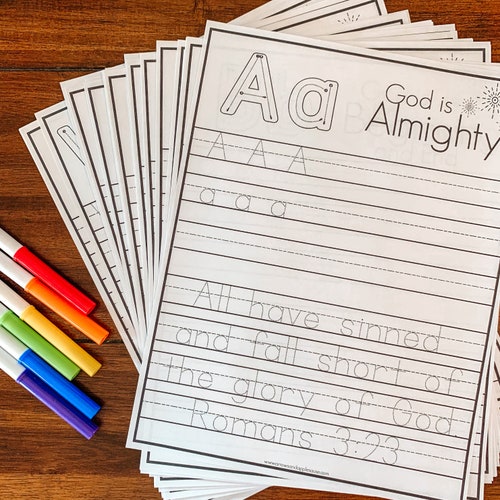 Aa
God is
Almighty
A A A
a a a
All have sinned
and fall short of
the glory of God.
Romans 3:23